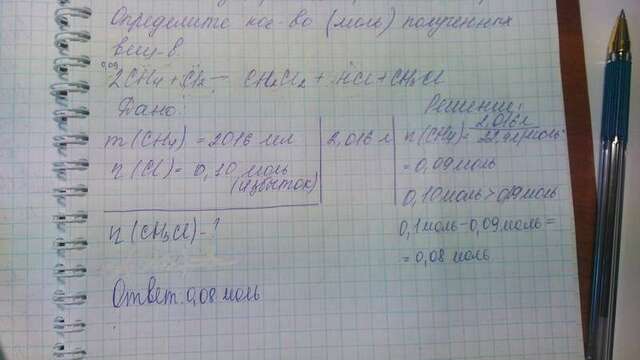 Определите кол-во (моль) полученных
вещ-в
0,09
2CH4 + Cl2 = CH2Cl2 + HCl + CH3Cl
Дано:
m (CH4) = 2016 мл
n (Cl) = 0,10 моль
(избыток)
n (CH3Cl) - ?
2,016 л
Решение:
n (CH4) = 2,016 л / 22,4 л/моль
= 0,09 моль
0,10 моль > 0,09 моль
0,1 моль - 0,09 моль =
= 0,08 моль
Ответ: 0,08 моль